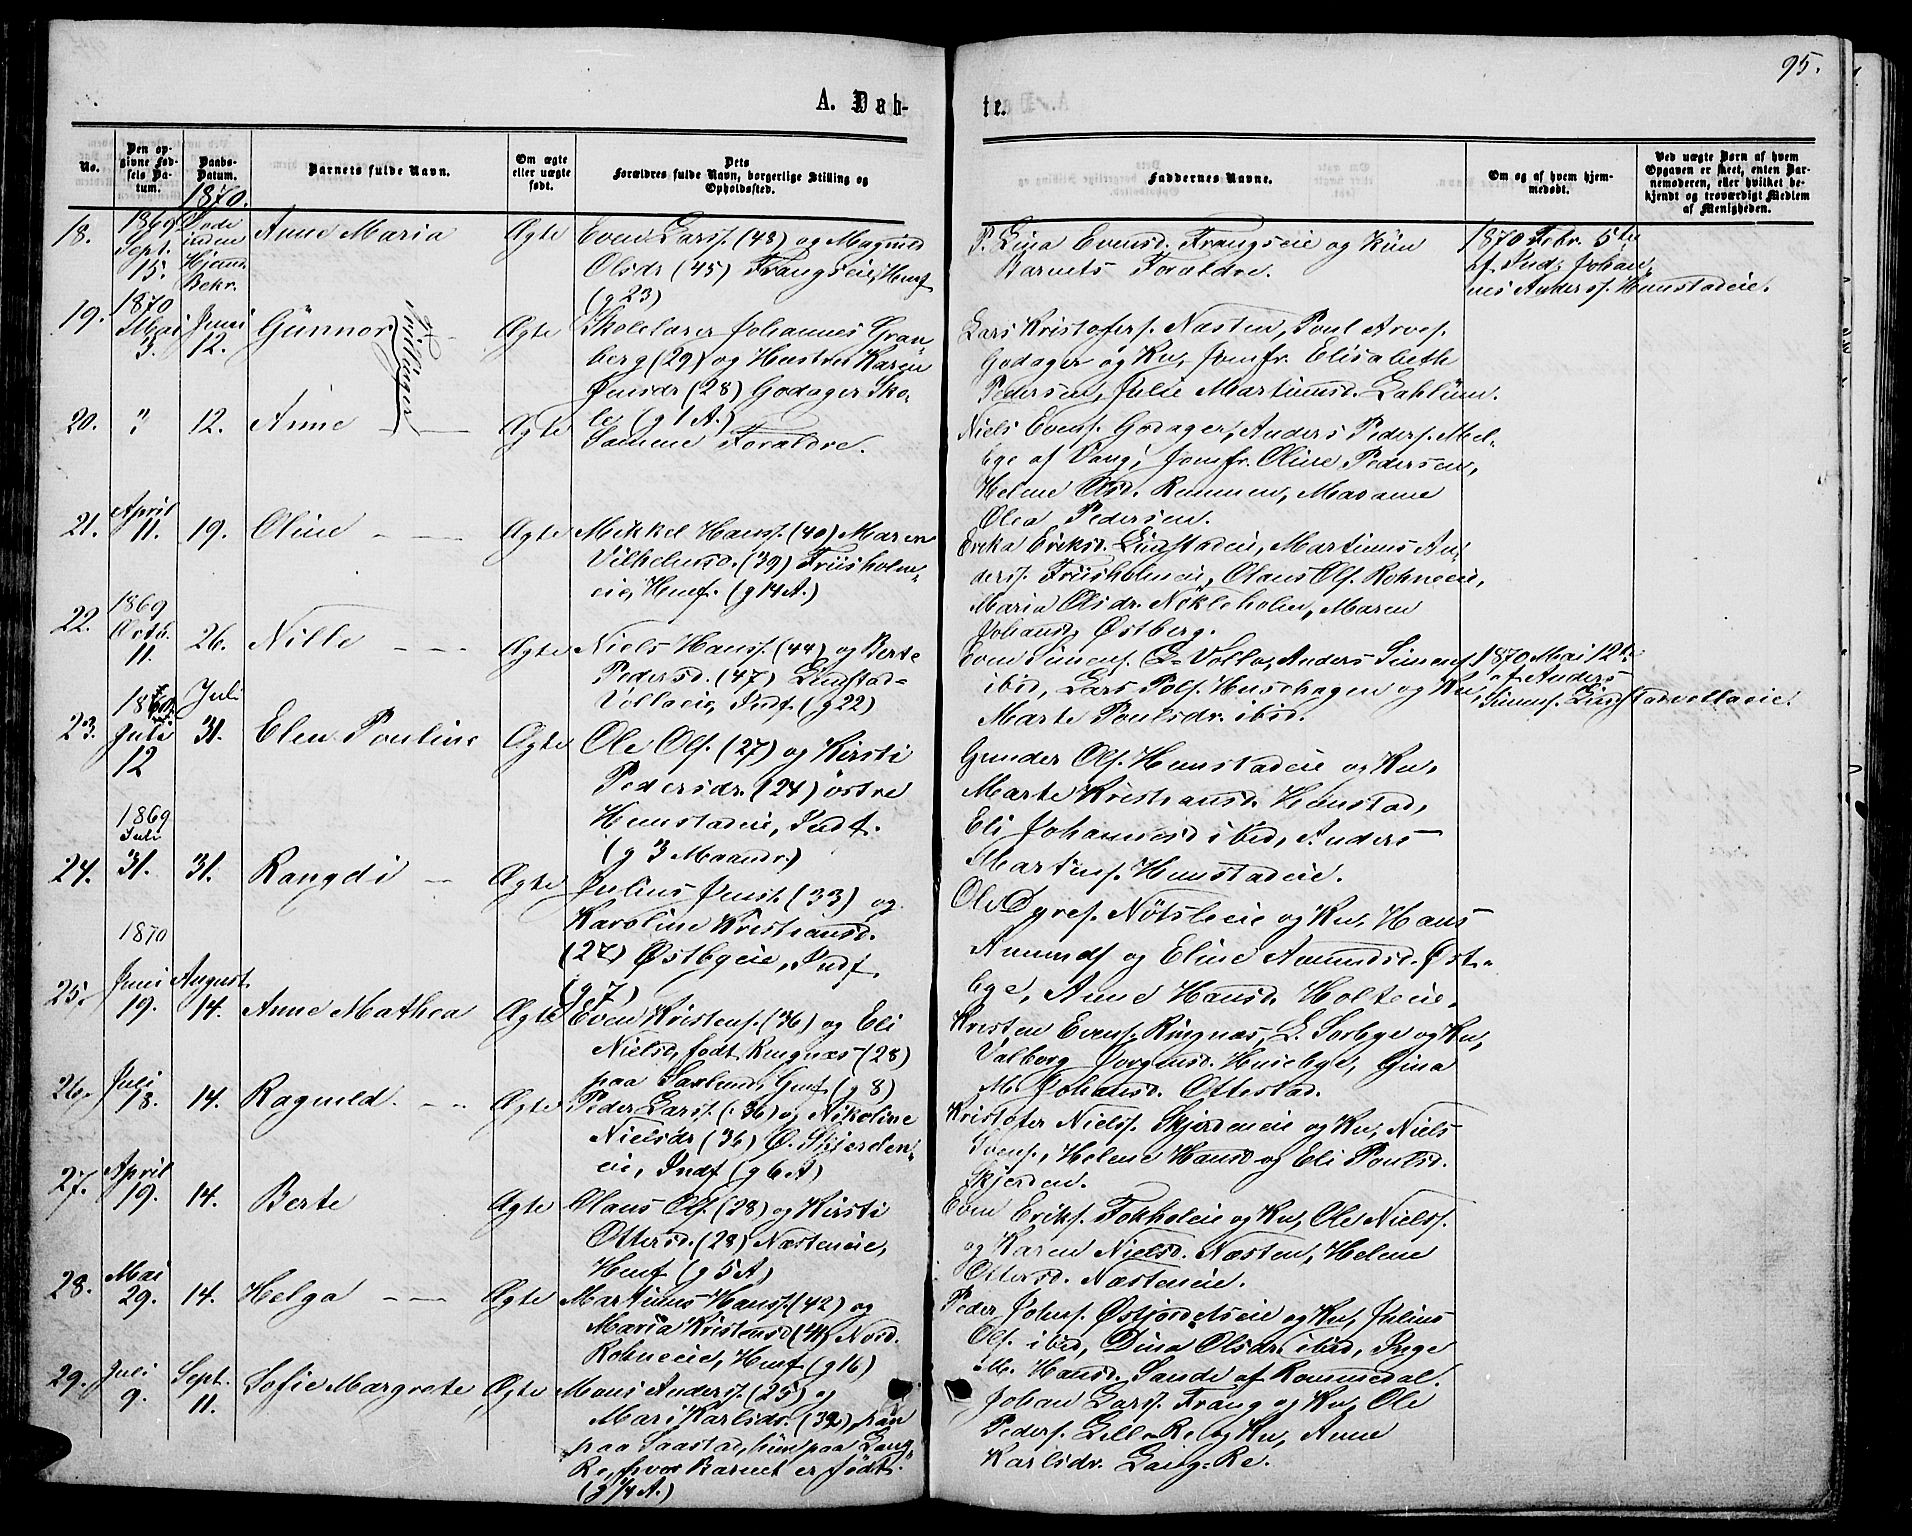 95.
A. Døb-
te.
No.
Den op-
givne Fød-
sels Da-
tum.
Daabs-
Datum.
1870.
Barnets fulde Navn.
Om ægte
eller uægte
født.
Dets
Forældres fulde Navn, borgerlige Stilling og
Opholdssted.
Faddernes Navne.
Om og af hvem hjem-
medøbt.
Ved uægte Børn af hvem
Opgaven er skeet, enten Bar-
nemoderen, eller hvilket be-
kjendt og troværdigt Medlem
af Menigheden.
18.
1869
Sept.
15.
Døde
uden
Hjem.
Bekr.
Anne Maria
Ægte
Even Larsf. (43) og Magnild
Olsdr (45) Frangseie, Hemf
(g 23)
P. Lina Evensd. Frangseie og kün
Barnets Forældre.
1870 Febr. 5te
af Ind: Johan-
nes Andersf. Hemstadeie.
19.
1870
Mai
3.
Juni
12.
Günnor
Tvillinger
Ægte
Skolelærer Johannes Gran-
berg (29) og Hustru Karen
Jensdr (28) Godager Sko-
le (g 1 A.)
Lars Kristofersf. Næsten, Poul Arvef.
Godager og Ku, Jomfr. Elisabeth
Pedersen, Julie Martinusd. Lahlum.
20.
"
12.
Anne
Ægte
Samme Forældre.
Niels Evensf. Godager, Anders Pedersf. Mel-
bye af Vang, Jomfr. Oline Pedersen,
Helene Olsd. Rommen, Madame
Olea Pedersen.
21.
April
11.
19.
Oline
Ægte
Mikkel Hansf. (40) Maren
Vilhelmsd. (39) Friisholm-
eie, Hemf. (g 14 A.)
Erika Eriksd. Lindstadeie, Martinus An-
dersf. Friisholmeie, Olaus Olsf. Rohneeie,
Maria Olsdr. Nökleholm, Maren
Johansd. Østberg.
22.
1869
Octb.
11.
26.
Nille
Ægte
Niels Hansf. (44) og Berte
Pedersd. (47) Lindstad-
Vollaeie, Indf. (g 22)
Even Simensf. L-Volla, Anders Simensf.
ibid, Lars Polsf. Husdhagen og Ku,
Marte Poulsdr. ibid.
1870 Mai 12te
af Anders
Simensf. Lindstadvollaeie.
23.
1870
Juli
12
Juli
31.
Elen Pouline
Ægte
Ole Olsf. (27) og Kirsti
Pedersdr. (24) östre
Hemstadeie, Indf.
(g 3 Maandr.)
Gunder Olsf. Hemstadeie og Ku,
Marte Kristiansd. Hemstad,
Eli Johannesd ibid, Anders
Martinsf. Hemstadeie.
24.
1869
Juli
31.
31.
Rangdi
Ægte
Julius Jensf. (33) og
Karoline Kristiansd.
(27) Østbyeie, Indf.
(g 7)
Ole Dyresf. Nötsleeie og Ku, Hans
Amundsf og Eline Amundsd. Øst-
bye, Anne Hansd. Holteeie.
25.
1870
Juni
19.
August
14.
Anne Mathea
Ægte
Even Kristensf. (36) og Eli
Nielsd, født Ringnæs (28)
paa Saxlund, Hemf. (g 8)
Kristen Evensf. Ringnæs, L. Sørbye og Ku,
Valborg Jorgensd. Huusebye, Gina
M. Johansd. Ottestad.
26.
Juli
18.
14.
Ragnild
Ægte
Peder Larsf. (36) og Nikoline
Nielsdr (36) Ø. Skjerden-
eie, Indf (g 6 A)
Kristofer Nielsf. Skjerdeneie og Ku, Niels
Svensf., Helene Hansd og Eli Poulsd.
Skjerden.
27.
April
19.
14.
Berte
Ægte
Olaus Olsf. (28) og Kirsti
Ottersd. (28) Næsteneie,
Hemf (g 5 A)
Even Eriksf. Fokholeie og Ku, Ole Nielsf.
og Karen Nielsd. Næsten, Helene
Ottersd. Næsteneie.
28.
Mai
29.
14.
Helga
Ægte
Martinus Hansf. (42) og
Maria Kristensd (41) Nord.
Rohneeie, Hemf (g 16)
Peder Johnsf. Østjordetseie og Ku, Julius
Olsf. ibid, Dina Olsdr. ibid, Inge
M. Hansd. Sande af Rommedal.
29.
Juli
9.
Sept.
11.
Sofie Margrete
Ægte
Mons Andersf. (25) og
Mari Karlsdr. (32), han
paa Saastad, hun paa Lang-
Re, hvor Barnet er født.
(g 1/4 A.)
Johan Larsf. Frang og Ku, Ole
Pedersf. Lill-Re og Ku, Anne
Karlsdr. Lang-Re.